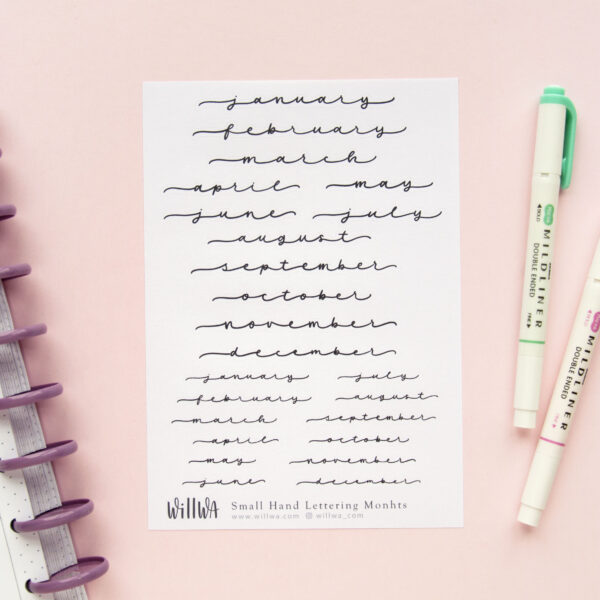 january
february
march
april may
june july
august
september
october
november
december
january july
february august
march september
april october
may november
june december
WillWA Small Hand Lettering Monhts
www.willwa.com willwa_com
MILDLINER
DOUBLE ENDED
BOLD
FINE
MILDLINER
DOUBLE ENDED